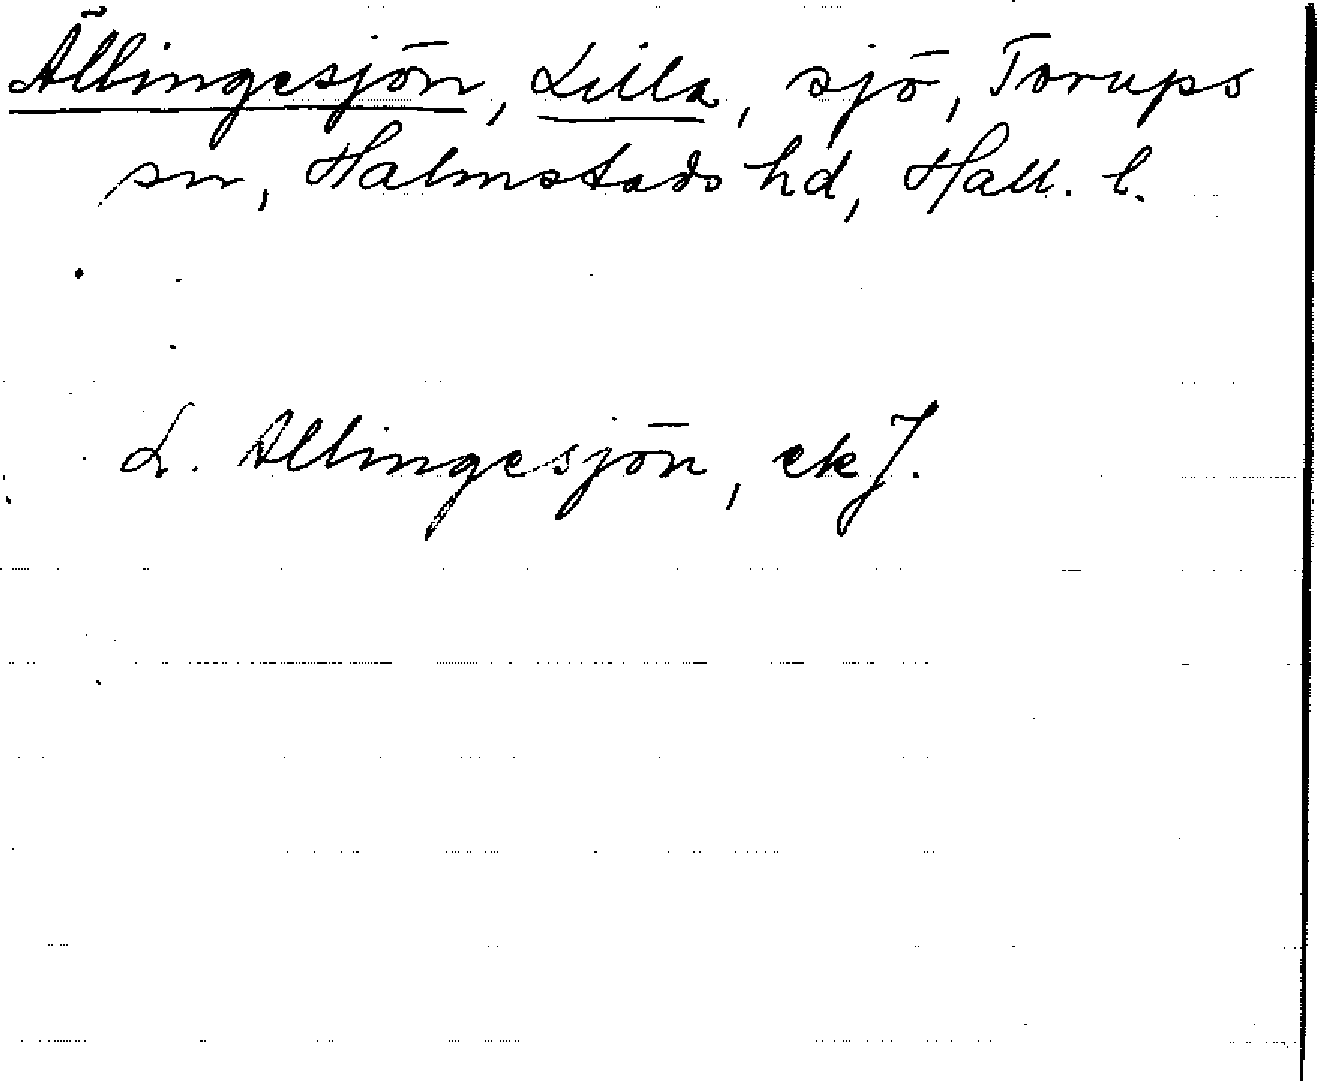 Ällingesjön, Lilla, sjö, Torups
sn, Halmstads hd, Hall. l.
L. Allingesjön, ekJ.